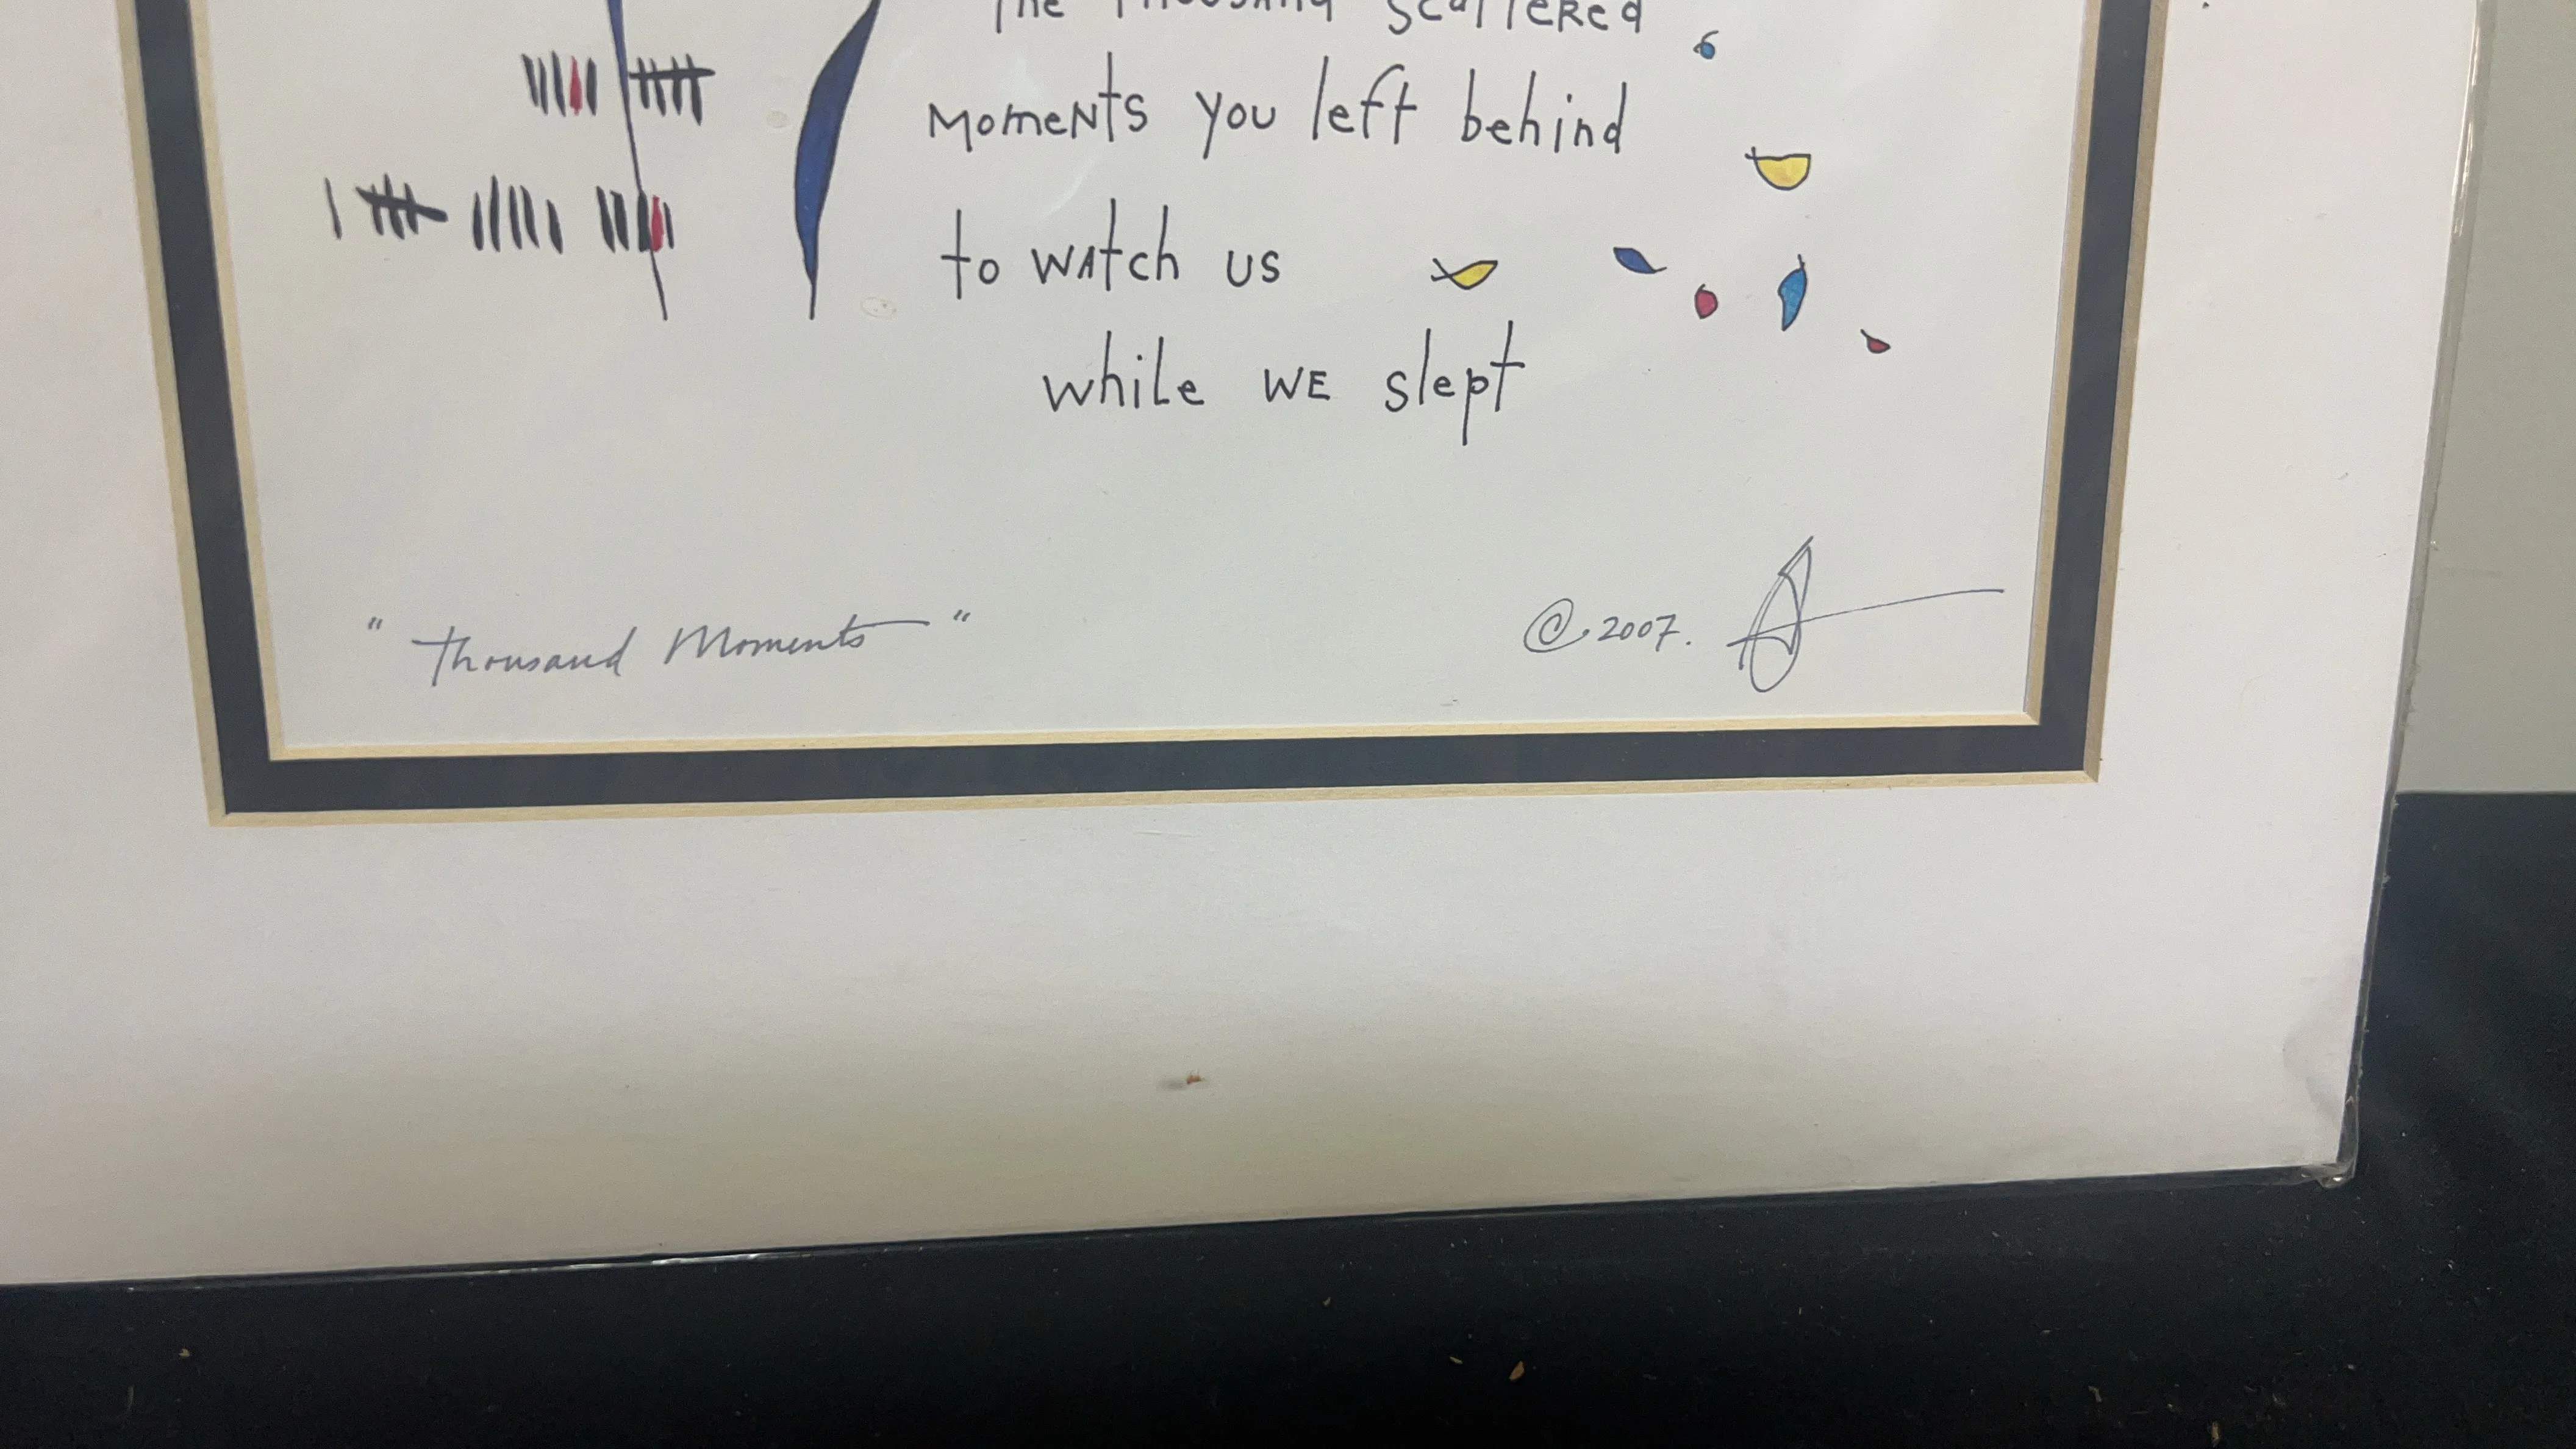 The Thousand scattered
moments you left behind
to watch us
while we slept
"Thousand Moments"
© 2007.